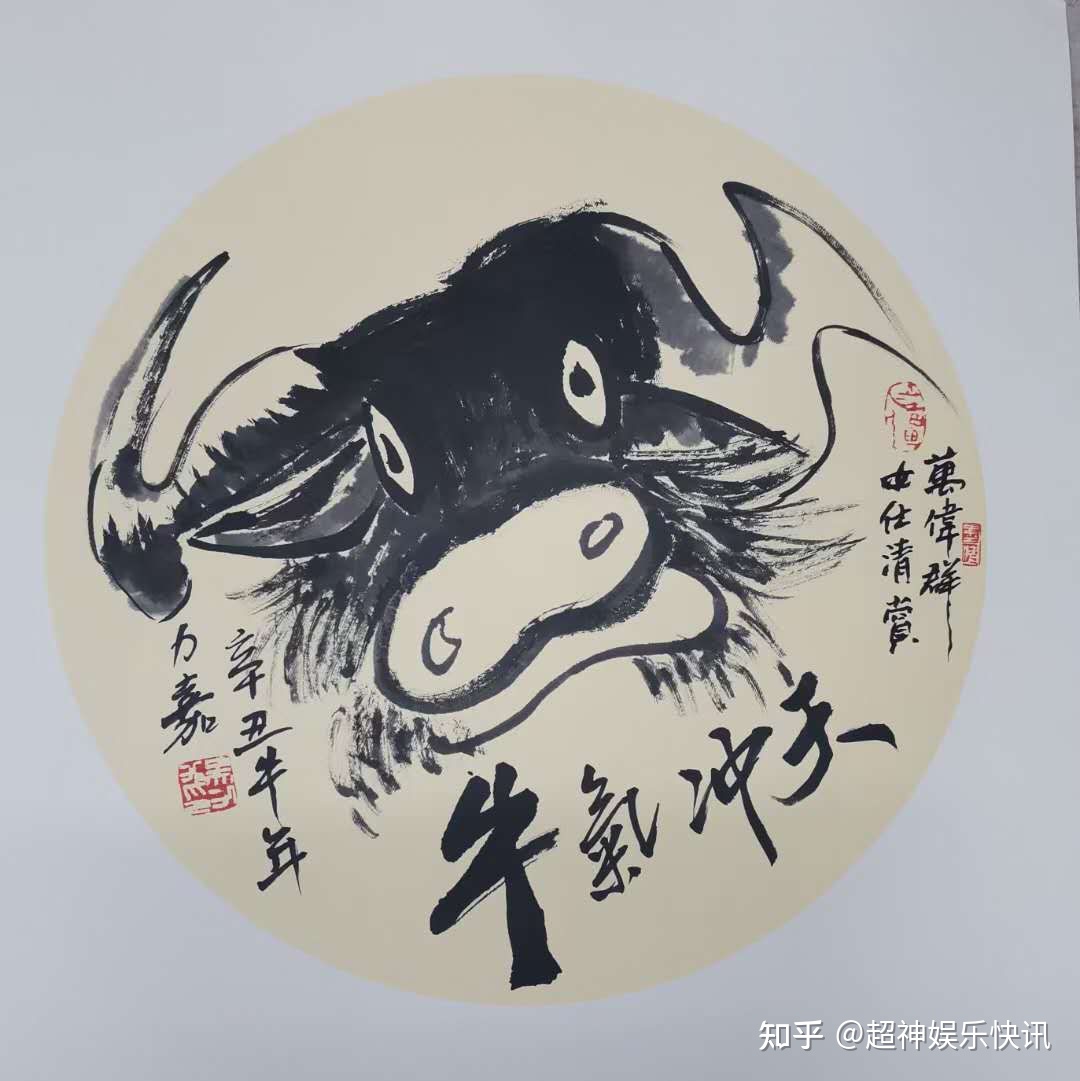 萬偉群
女仕清賞
牛氣冲天
辛丑牛年
力嘉
知乎 @超神娱乐快讯